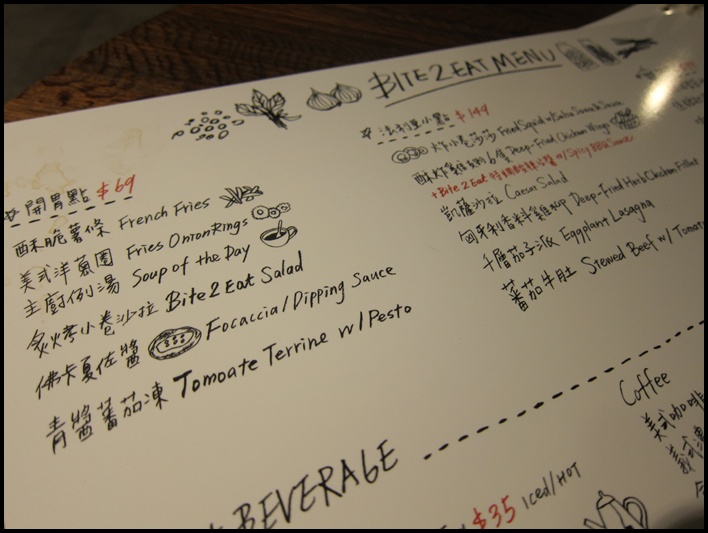 BITE 2 EAT MENU
開胃點 $69
酥脆薯條 French Fries
美式洋蔥圈 Fries Onion Rings
主廚例湯 Soup of the Day
炙烤小卷沙拉 Bite 2 Eat Salad
佛卡夏佐醬 Focaccia/Dipping Sauce
青醬蕃茄凍 Tomoate Terrine w/Pesto
$149
Fried Squid
Deep-Fried Chicken Wings
+Bite 2 Eat w/Spicy BBQ Sauce
凱薩沙拉 Caesar Salad
匈牙利香料雞 Deep-Fried Herb Chicken Fillet
千層茄子派 Eggplant Lasagna
蕃茄牛肚 Stewed Beef w/ Tomato
BEVERAGE
$35 Iced/HOT
Coffee
美式咖啡
義式